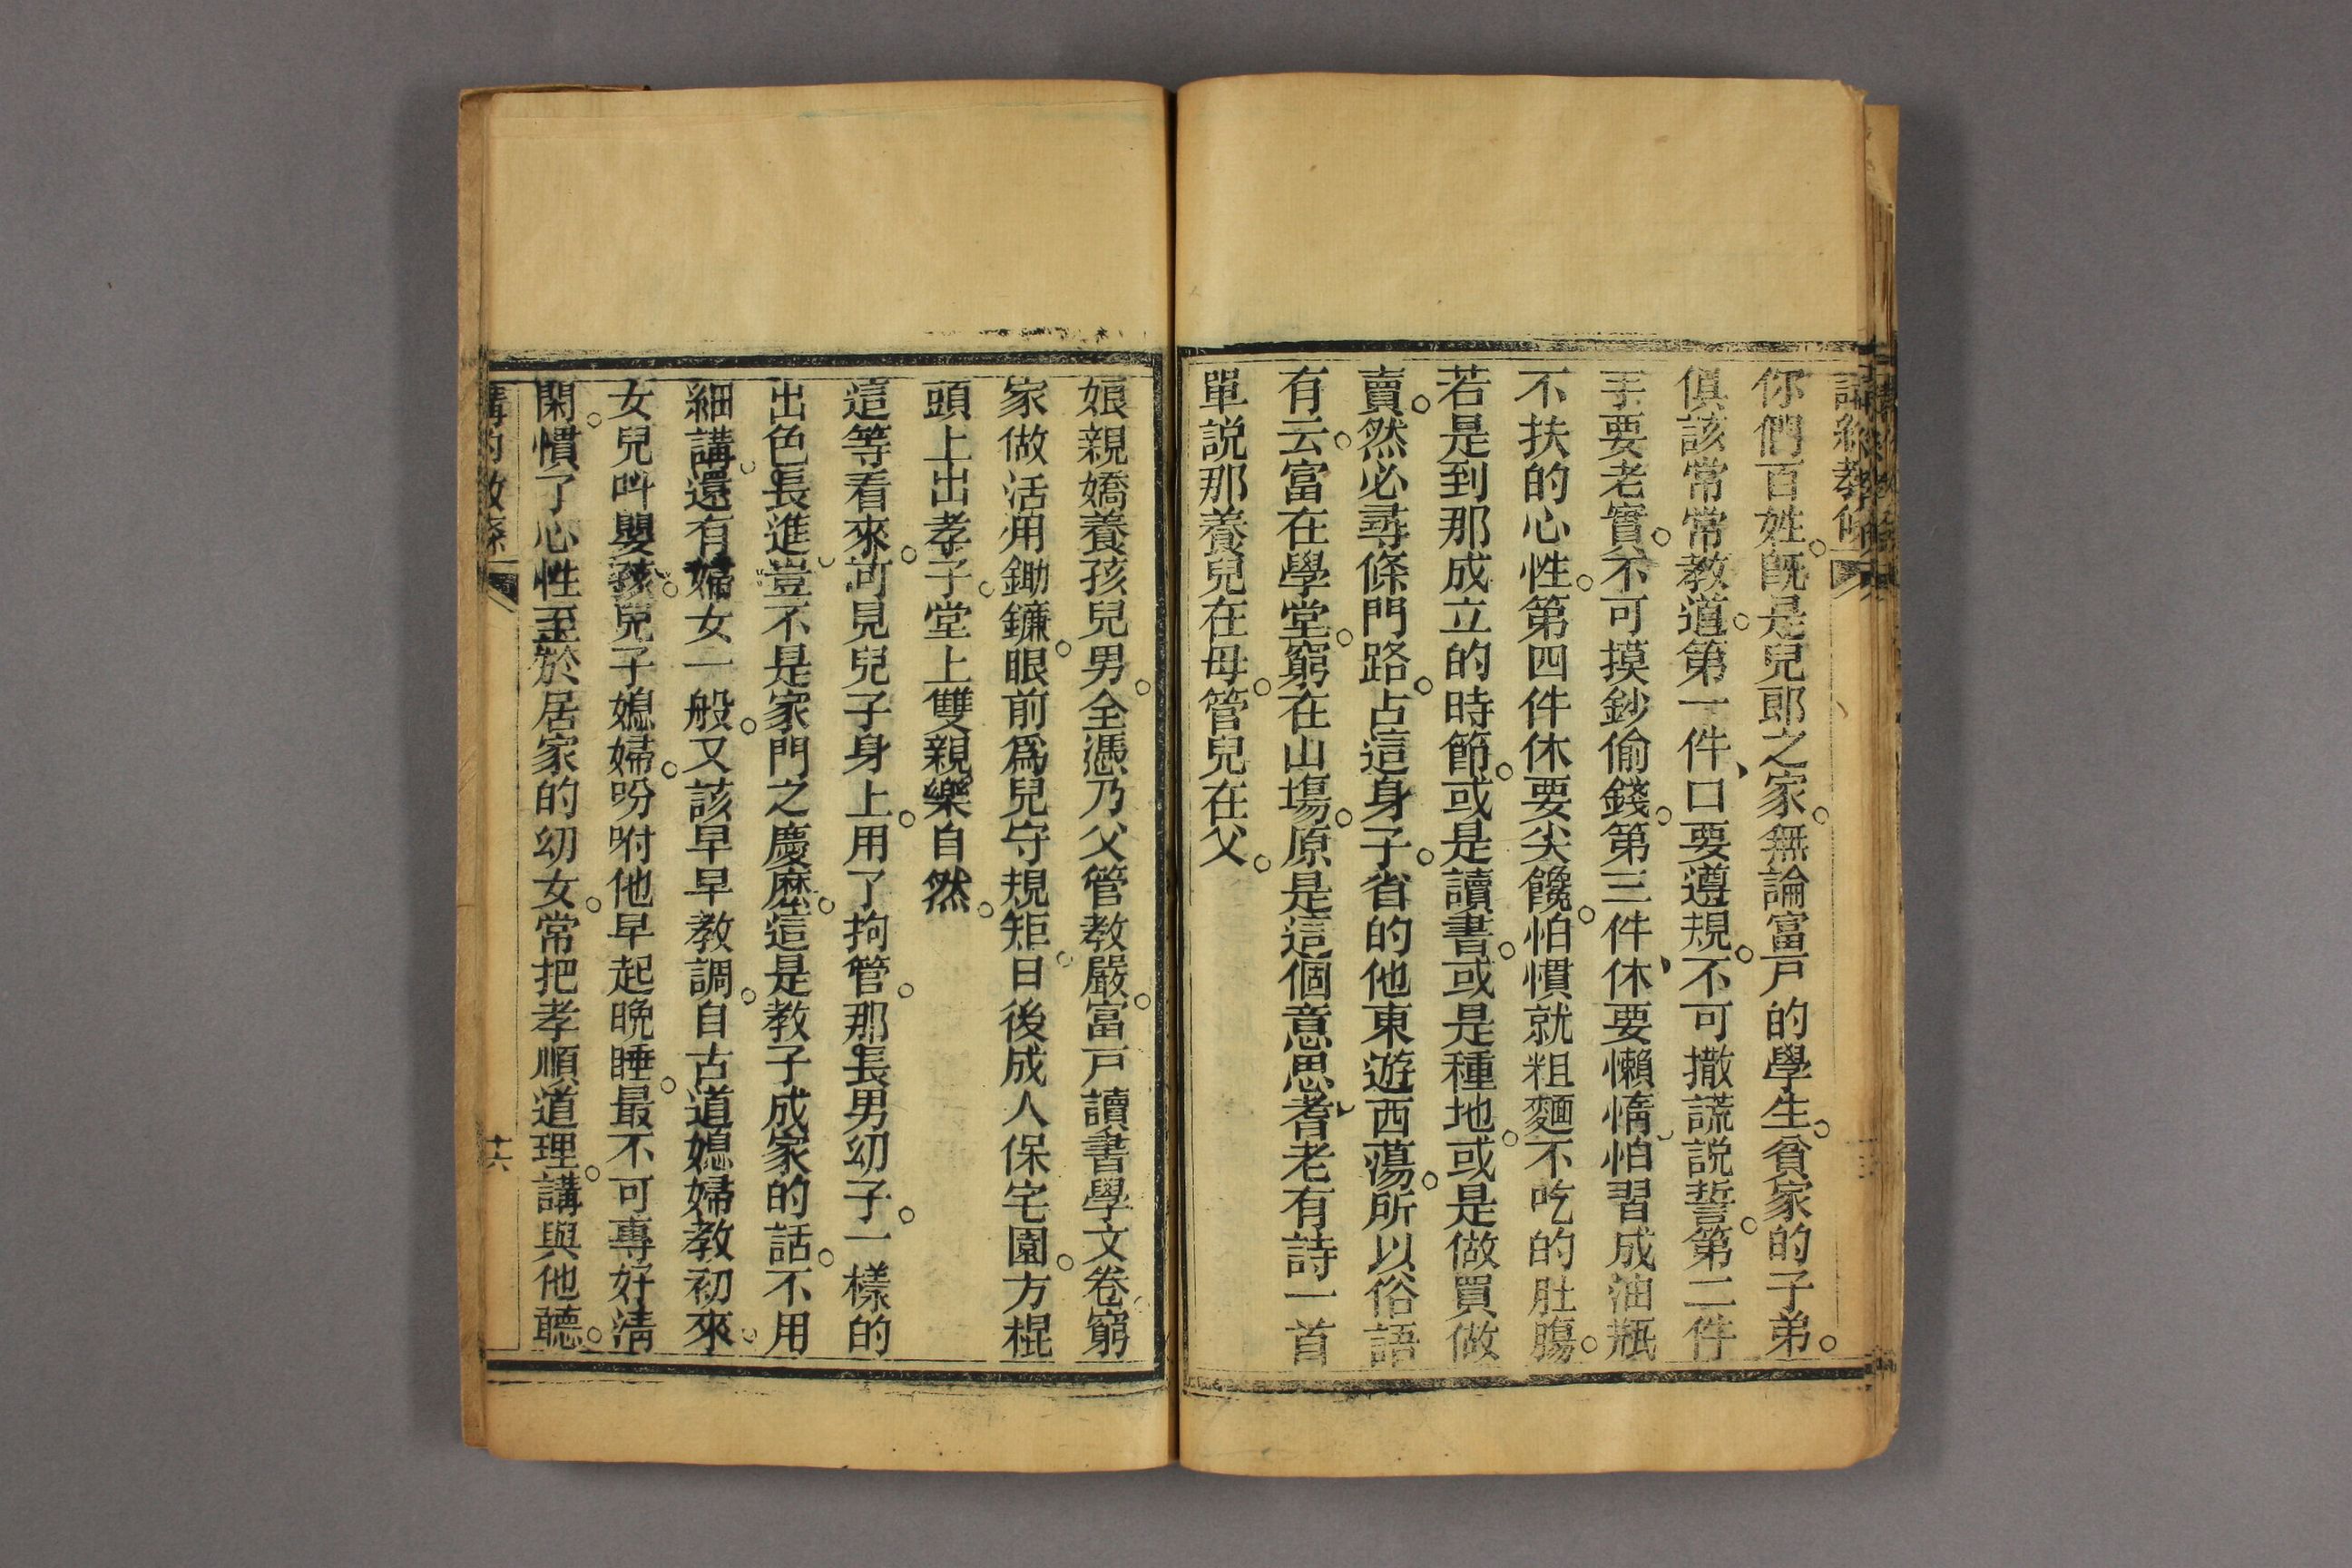 你們百姓。旣是兒郎之家。無論富戸的學生。貧家的子弟。
俱該常常教道。第一件、口要遵規。不可撒謊説誓。第二件
手要老實。不可摸鈔偷錢。第三件、休要懶惰。怕習成油瓶
不扶的心性。第四件休要尖饞。怕慣就粗麵不吃的肚腸。
若是到那成立的時節。或是讀書。或是種地。或是做買做
賣。然必尋條門路。占這身子。省的他東遊西蕩。所以俗語
有云。富在學堂。窮在山塲。原是這個意思、耆老有詩一首
單説那養兒在母。管兒在父。
娘親嬌養孩兒男。全憑乃父管教嚴。富戸讀書學文卷。窮
家做活用鋤鐮。眼前爲兒守規矩。日後成人保宅園。方棍
頭上出孝子。堂上雙親樂自然。
這等看來。可見兒子身上。用了拘管。那長男幼子。一樣的
出色長進、豈不是家門之慶麽。這是教子成家的話。不用
細講。還有婦女一般。又該早早教調。自古道媳婦教初來。
女兒呌嬰孩。兒子媳婦。吩咐他早起晩睡。最不可專好淸
閑。慣了心性至於居家的幼女。常把孝順道理。講與他聽。
十六